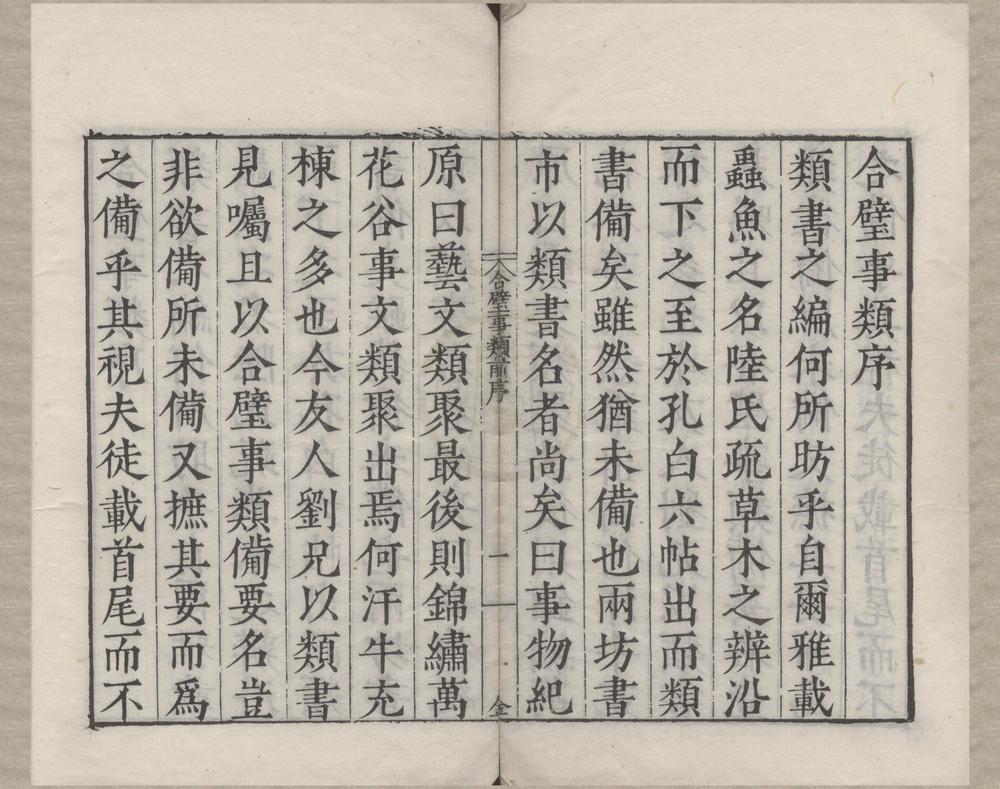 合璧事類序
類書之編何所昉乎自爾雅載
蟲魚之名陸氏疏草木之辨沿
而下之至於孔白六帖出而類
書備矣雖然猶未備也兩坊書
市以類書名者尚矣曰事物紀
合璧事類前序
一
金
原曰藝文類聚最後則錦繡萬
花谷事文類聚出焉何汗牛充
棟之多也今友人劉兄以類書
見囑且以合璧事類備要名豈
非欲備所未備又摭其要而爲
之備乎其視夫徒載首尾而不